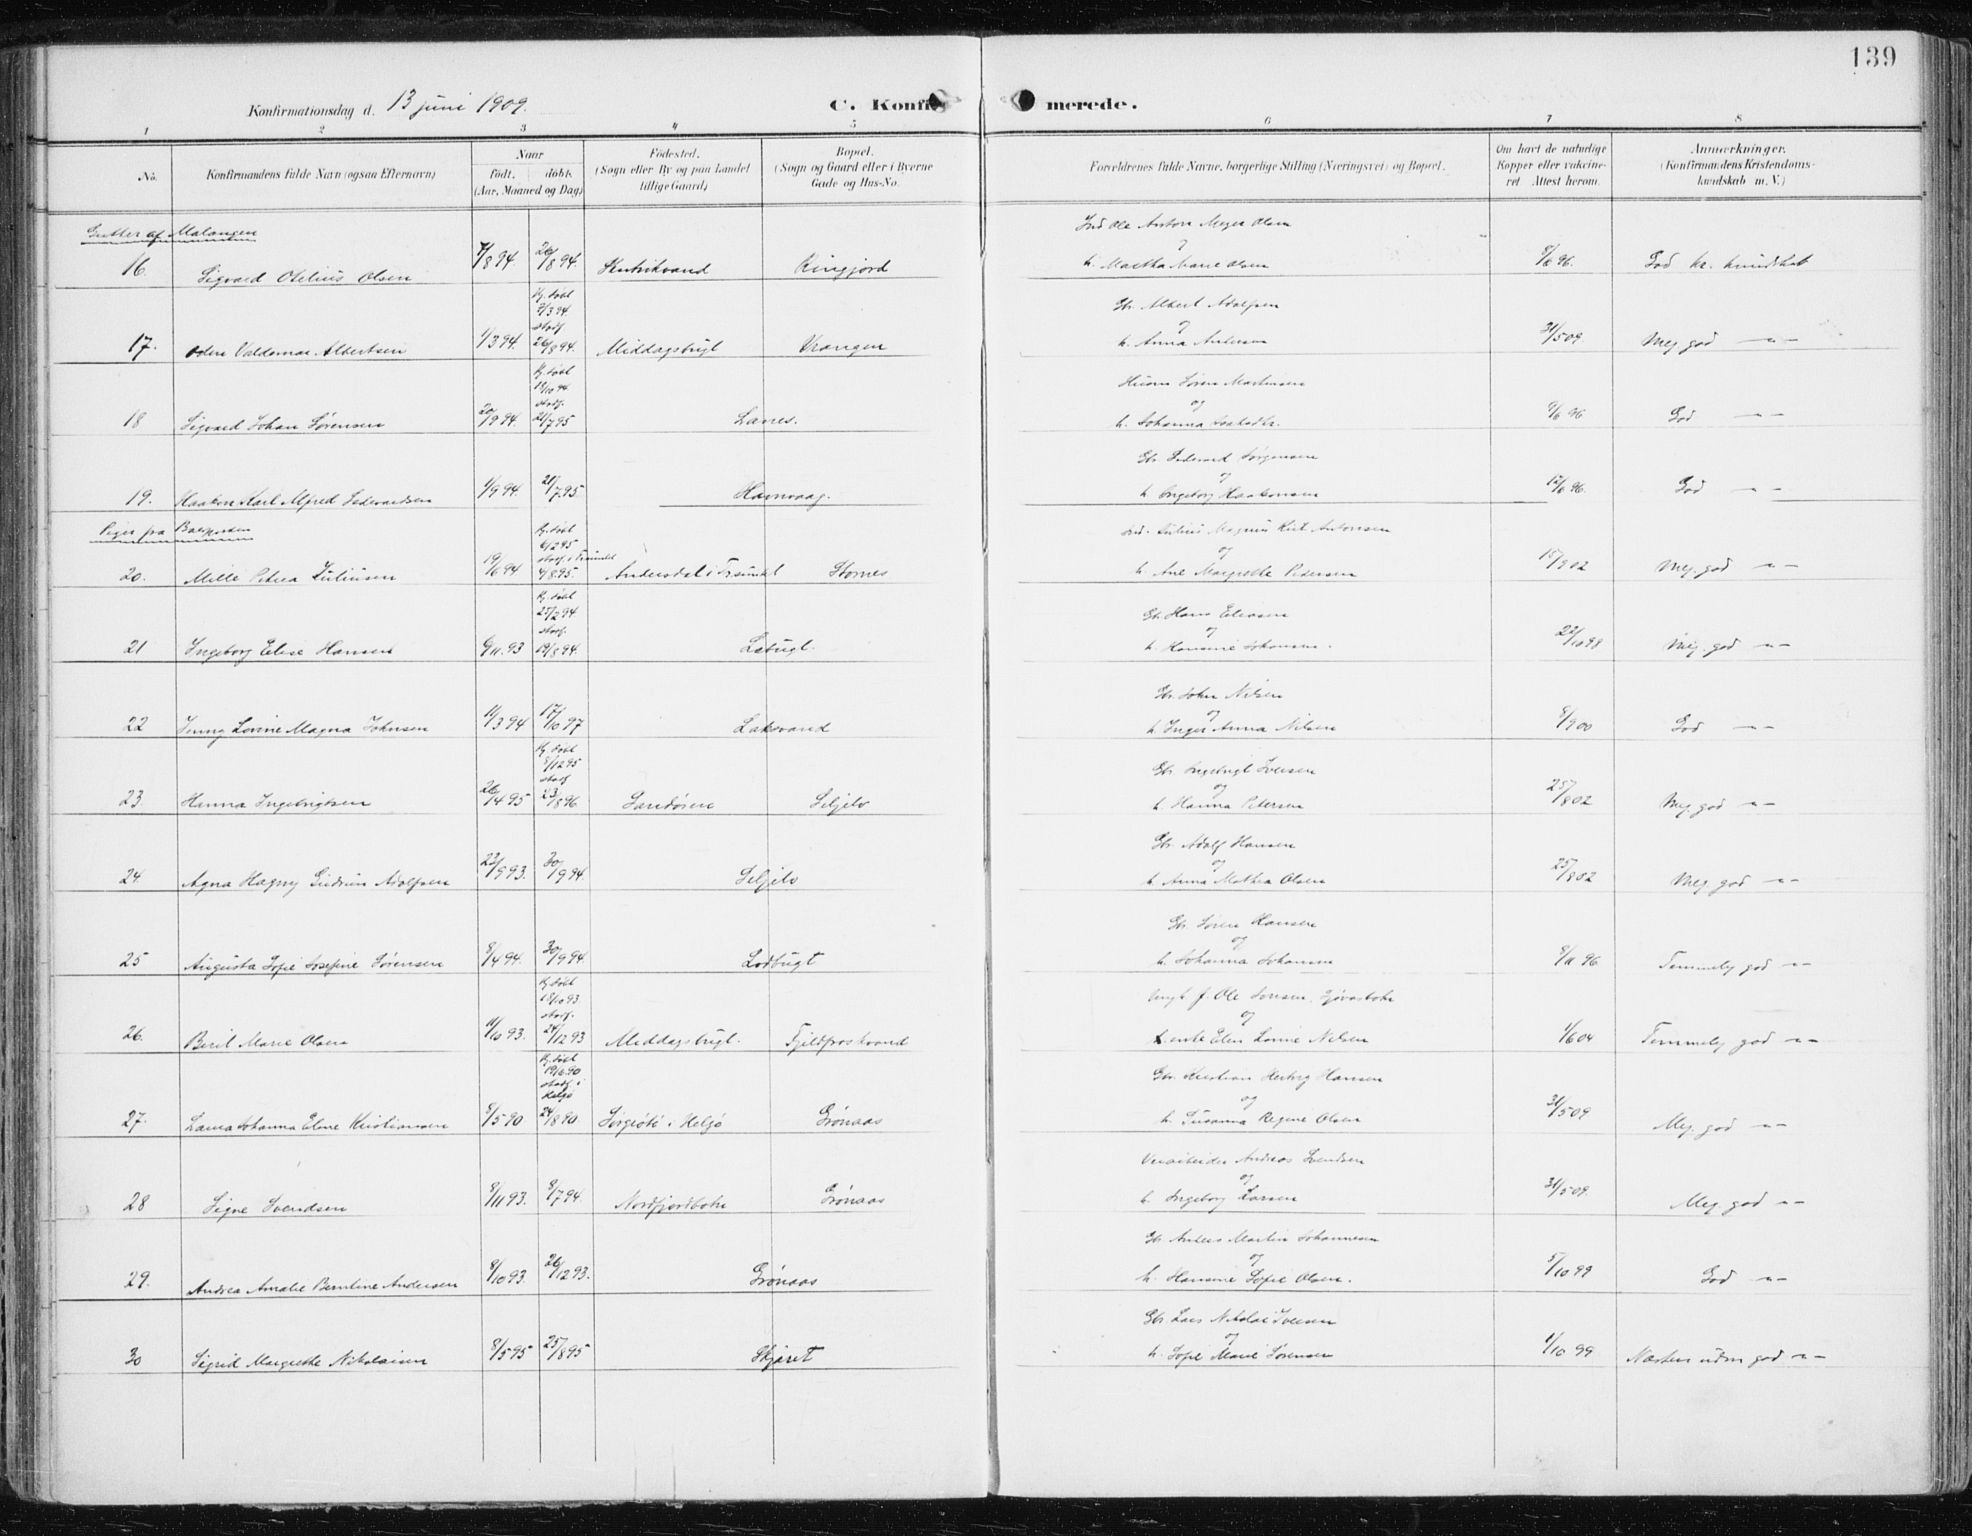 139
Konfirmationsdag d. 13 juni 1909.
C. Konfirmerede.
1 2 3 4 5 6 7 8
No.
Konfirmandens fulde Navn (ogsaa Efternavn)
Naar
født. døbt.
(Aar, Maaned og Dag)
Fødested.
(Sogn eller By og paa Landet
tillige Gaard)
Bopæl.
(Sogn og Gaard eller i Byerne
Gade og Hus-No.
Forældrenes fulde Navne, borgerlige Stilling (Næringsvei) og Bopæl.
Om havt de naturlige
Kopper eller vakcine-
ret. Attest herom.
Anmærkninger.
(Konfirmandens Kristendoms-
kundskab m. V.)
Gutter af Malangen
Ole Anton Meyer Olsen
og
16. Sigvard Otelius Olsen 7/8 94. 26/8 94. Kingjord h. Martha Marie Olsen 8/6 96. God kr. kundskab
Hj. døbt
Gbr. Albert Adolfsen
stadf. og
17. Oden Valdemar Albertsen 1/3 94. 26/8 94. Middagsbugt Vrangen h. Anna Andersen 31/5 09 Meg. god -"-
Hj. døbt
19/10 94. Søren Martinsen
stadf. og
18 Sigvard Johan Sørensen 20/9 94. 21/7 95 Lanes. h. Johanna 9/6 96 God -"-
Gbr. Edevard Jørgensen
og
19. Haakon Karl Alfred Edevardsen 1/9 94. 21/7 95. Havnvaag. h. Ingeborg Haakonsen 12/6 96. God -"-
Piger fra Balsfjorden
Hj. døbt
6/2 95 Julius Magnus Kiil Antonsen
stadf. i Tromsund og
20. Mille Petrea Juliusen 19/6 94 4/8 95. Andersdal i Tromsund Stornes h. Ane Margrethe Pedersen 15/9 02 Meg. god -"-
Hj. døbt
25/2 94 Gbr. Hans Eliasen
stadf. og
21 Ingeborg Elise Hansen 6/11 93 19/8 94. h. Hansine Johansen. 22/10 98 Meg. god -"-
Gbr. John Nilsen
og
22 Jenny Lovine Magna Johnsen 11/3 94 17/10 97 Laksvand h. Inger Anna Nilsen 8/9 00 God -"-
Hj. døbt
8/12 95 Gbr. Ingebrigt Iversen
stadf. og
23. Hanna Ingebrigtsen 26/4 95 23/8 96 Sandøren Seljelv h. Hanna Petersen 25/8 02 Meg. god -"-
Gbr. Adolf Hansen
og
24. Agna Hagny Gudrun Adolfsen 23/9 93. 30/9 94 Seljelv h. Anna Mathea Olsen 25/8 02 Meg. god -"-
Gbr. Søren Hansen
og
25 Augusta Sofie Josefine Sørensen 8/4 94. 30/9 94. Lodbugt h. Johanna Johansen 9/11 96 Temmelig god -"-
Hj. døbt
18/10 93 Ungk. f. Ole Jensen,
stadf. og
26. Beril Marie Olsen 11/10 93. 24/12 93 Middagsbugt. Fjeldfroskvand enke Elen Lovine Nilsen 1/6 04 Temmelig god -"-
Hj. døbt
19/6 90 Gbr. Kristian Hertvig Hansen
stadf. i
Helgø og
27. Laura Johanna Eline Kristiansen 8/5 90 24/8 90 i Helgø Grønaas h. Susanna Regine Olsen 31/5 09 Meg. god -"-
Veiarbeider Andreas Svendsen
og
28 Signe Svendsen 8/11 93. 8/7 94. Nordfjordbotn Grønaas h. Ingeborg Larsen 31/5 09. Meg. god -"-
Gbr. Anders Martin Johannesen
og
29. Andrea Amalie Berntine Andersen 8/10 93. 26/12 93. Grønaas h. Hansine Sofie Olsen. 5/10 99 God -"-
Gbr. Lars Nikolai Iversen
og
30 Sigrid Margrethe Nikolaisen 8/5 95 25/8 95 Skjæret h. Sofie Marie Sørensen 1/10 99 Næsten uden god -"-